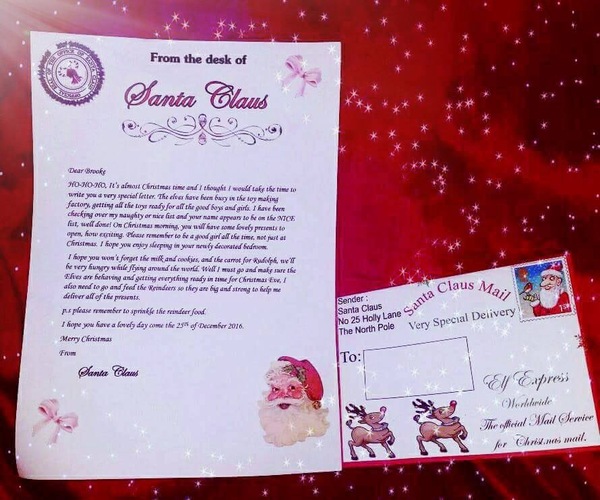 From the desk of
Santa Claus
Dear Brooke
HO-HO-HO, It's almost Christmas time and I thought I would take the time to
write you a very special letter. The elves have been busy in the toy making
factory, getting all the toys ready for all the good boys and girls. I have been
checking over my naughty or nice list and your name appears to be on the NICE
list, well done! On Christmas morning, you will have some lovely presents to
open, how exciting. Please remember to be a good girl all the time, not just at
Christmas. I hope you enjoy sleeping in your newly decorated bedroom.
I hope you won't forget the milk and cookies, and the carrot for Rudolph, we'll
be very hungry while flying around the world. Well I must go and make sure the
Elves are behaving and getting everything ready in time for Christmas Eve, I
also need to go and feed the Reindeers so they are big and strong to help me
deliver all of the presents.
p.s please remember to sprinkle the reindeer food.
I hope you have a lovely day come the 25th of December 2016.
Merry Christmas
From
Santa Claus
Sender :
Santa Claus
No 25 Holly Lane
The North Pole
Santa Claus Mail
Very Special Delivery
To:
Elf Express
Worldwide
The official Mail Service
for Christmas mail.